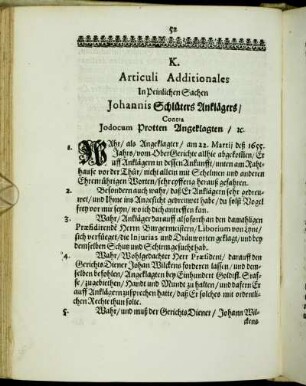 52
K.
Articuli Additionales
In Peinlichen Sachen
Johannis Schlüters Anklägers/
Contra
Jodocum Protten Angeklagten / ꝛc.
1. WAhr/ als Angeklagter/ am 22. Martij deß 1655.
Jahrs/ vom OberGerichte allhie abgetretten/ Er
auff Anklägern in dessen Ankunfft/ unten am Rath-
hause vor der Thür/ nicht allein mit Schelmen und anderen
Ehrenrührigen Worten/ sehr eyfferig herauß gefahren.
2. Besondern auch wahr/ daß Er Anklägern sehr ordent-
lich/ und Ihme ins Angesicht getrewet habe/ da solß Vogel
frey vor mir seyn/ wo ich dich antreffen kan.
3. Wahr/ Ankläger darauff also forth an den damahligen
Præsidirende Herrn Bürgermeistern/ Liborium von Lyne/
sich verfüget/ die Injurias und Dräuworten geklagt/ und bey
demselben Schutz und Schirm gesucht hab.
4. Wahr/ Wohlgedachter Herr Præsident/ darauff den
GerichtsDiener Johan Wilckens fordern lassen/ und dem-
selben befohlen/ Angeklagten bey Einhundert Goldfl. Straf-
fe/ zugebiethen/ Handt und Mundt zu halten/ und dafern Er
auff Anklägern zusprechen hatte/ daß Er solches mit ordenli-
chen Rechte thun solte.
5. Wahr/ und muß der GerichtsDiener/ Johann Wil-
ckens